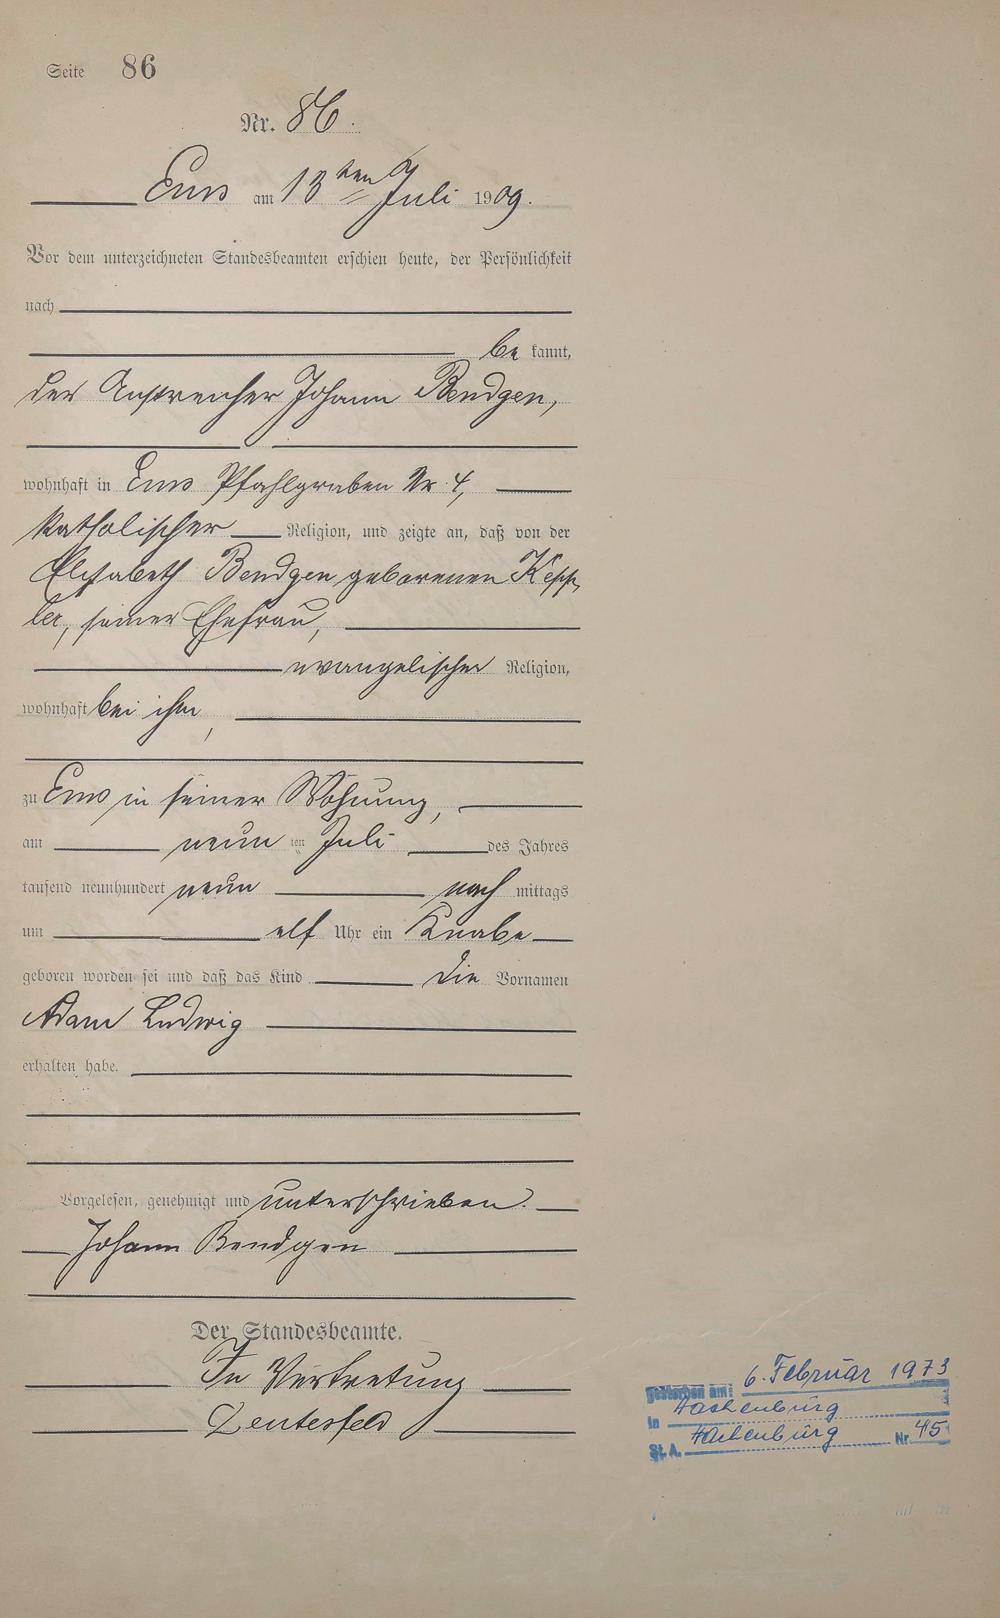 Seite 86
Nr. 86.
Ems am 13ten Juli 1909.
Vor dem unterzeichneten Standesbeamten erschien heute, der Persönlichkeit
nach
be kannt,
der Anstreicher Johann Bendgen,
wohnhaft in Ems Pfahlgraben Nr. 4,
katholischer Religion, und zeigte an, daß von der
Elisabeth Bendgen geborenen Kepp-
ler, seiner Ehefrau,
evangelischer Religion,
wohnhaft bei ihm,
zu Ems in seiner Wohnung,
am neunten Juli des Jahres
tausend neunhundert neun nach mittags
um elf Uhr ein Knabe
geboren worden sei und daß das Kind die Vornamen
Adam Ludwig
erhalten habe.
Vorgelesen, genehmigt und unterschrieben.
Johann Bendgen
Der Standesbeamte.
In Vertretung
gestorben am: 6. Februar 1973
in Hachenburg
St. A. Hachenburg Nr. 45